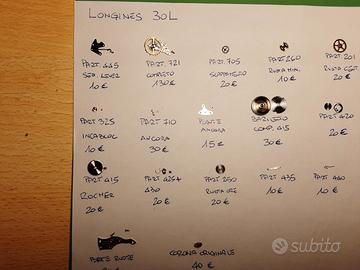 LONGINES 30L
PART. 445
SET. LEVER
10€
PART. 721
COMPLETO
130€
PART. 705
20€
PART. 260
RUOTA MIN.
10€
PART. 201
20€
PART. 325
INCABLOC
10€
PART. 710
ANCORA
30€
PONTE
ANCORA
15€
BARILETTO
COMP. 415
30€
PART. 420
20€
PART. 415
ROCHET
20€
PART. 425+
430
20€
PART. 250
RUOTA ORE
20€
PART. 435
10€
PART. 440
10€
PONTE RUOTE
CORONA ORIGINALE
40€
subito